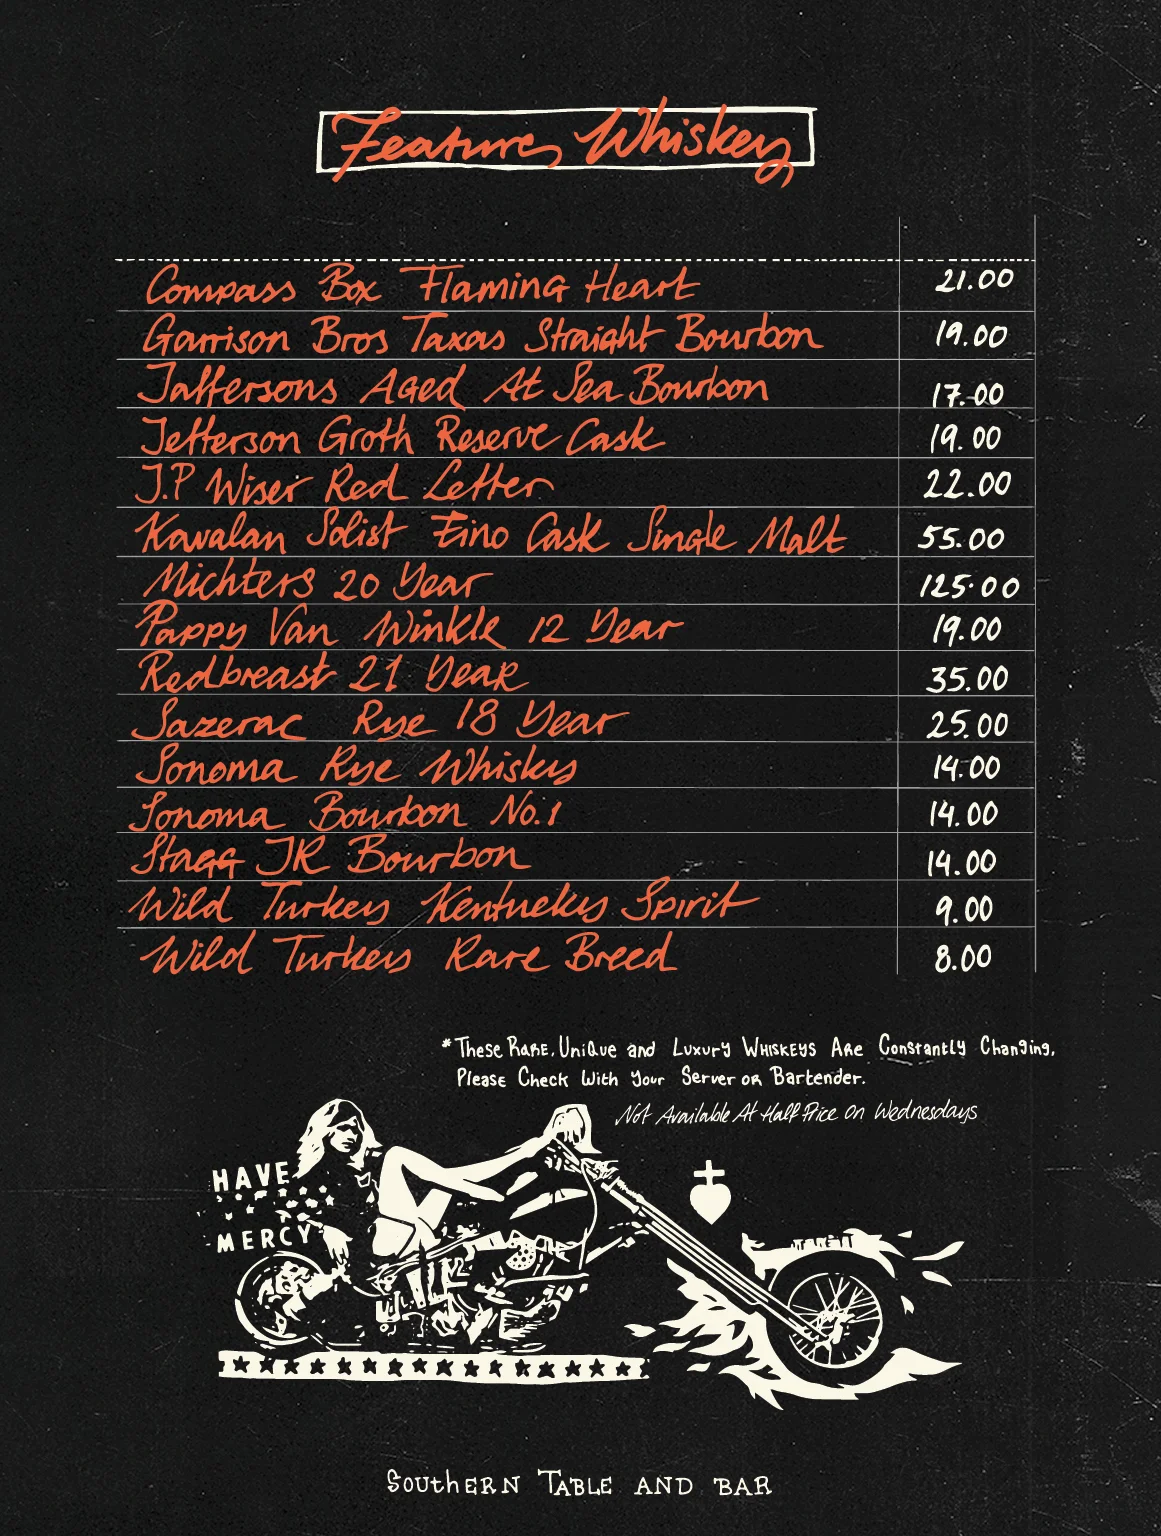 Feature Whiskey
Compass Box Flaming Heart 21.00
Garrison Bros Taxas Straight Bourbon 19.00
Jaffersons Aged At Sea Bourbon 17.00
Jefferson Groth Reserve Cask 19.00
J.P Wiser Red Letter 22.00
Kavalan Solist Fino Cask Single Malt 55.00
Michters 20 Year 125.00
Pappy Van Winkle 12 Year 19.00
Redbreast 21 Year 35.00
Sazerac Rye 18 Year 25.00
Sonoma Rye Whiskey 14.00
Sonoma Bourbon No.1 14.00
Stagg JR Bourbon 14.00
Wild Turkey Kentucky Spirit 9.00
Wild Turkey Rare Breed 8.00
*These Rare, Unique and Luxury Whiskeys Are Constantly Changing,
Please Check With Your Server or Bartender.
Not Available At Half Price On Wednesdays
HAVE
MERCY
Southern Table and Bar